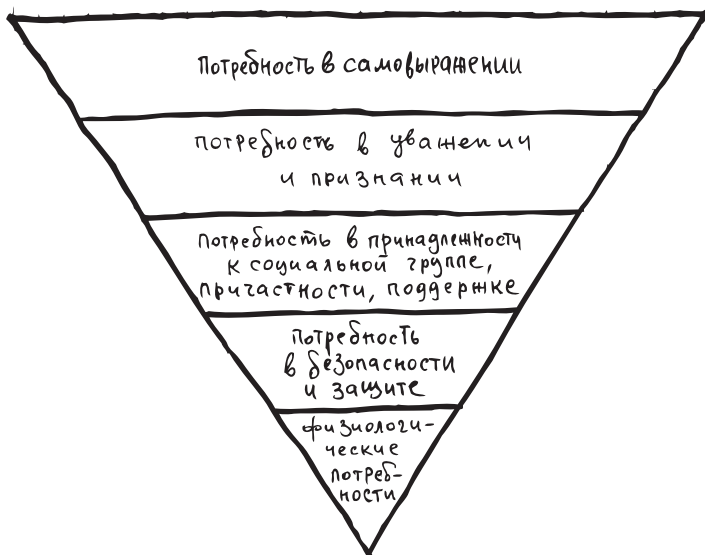 Потребность в самовыражении
потребность в уважении
и признании
потребность в принадлежности
к социальной группе,
причастности, поддержке
потребность
в безопасности
и защите
физиологи-
ческие
потреб-
ности